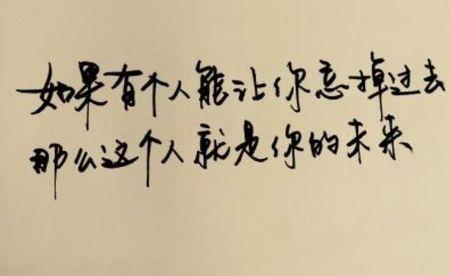 如果有个人能让你忘掉过去
那么这个人就是你的未来